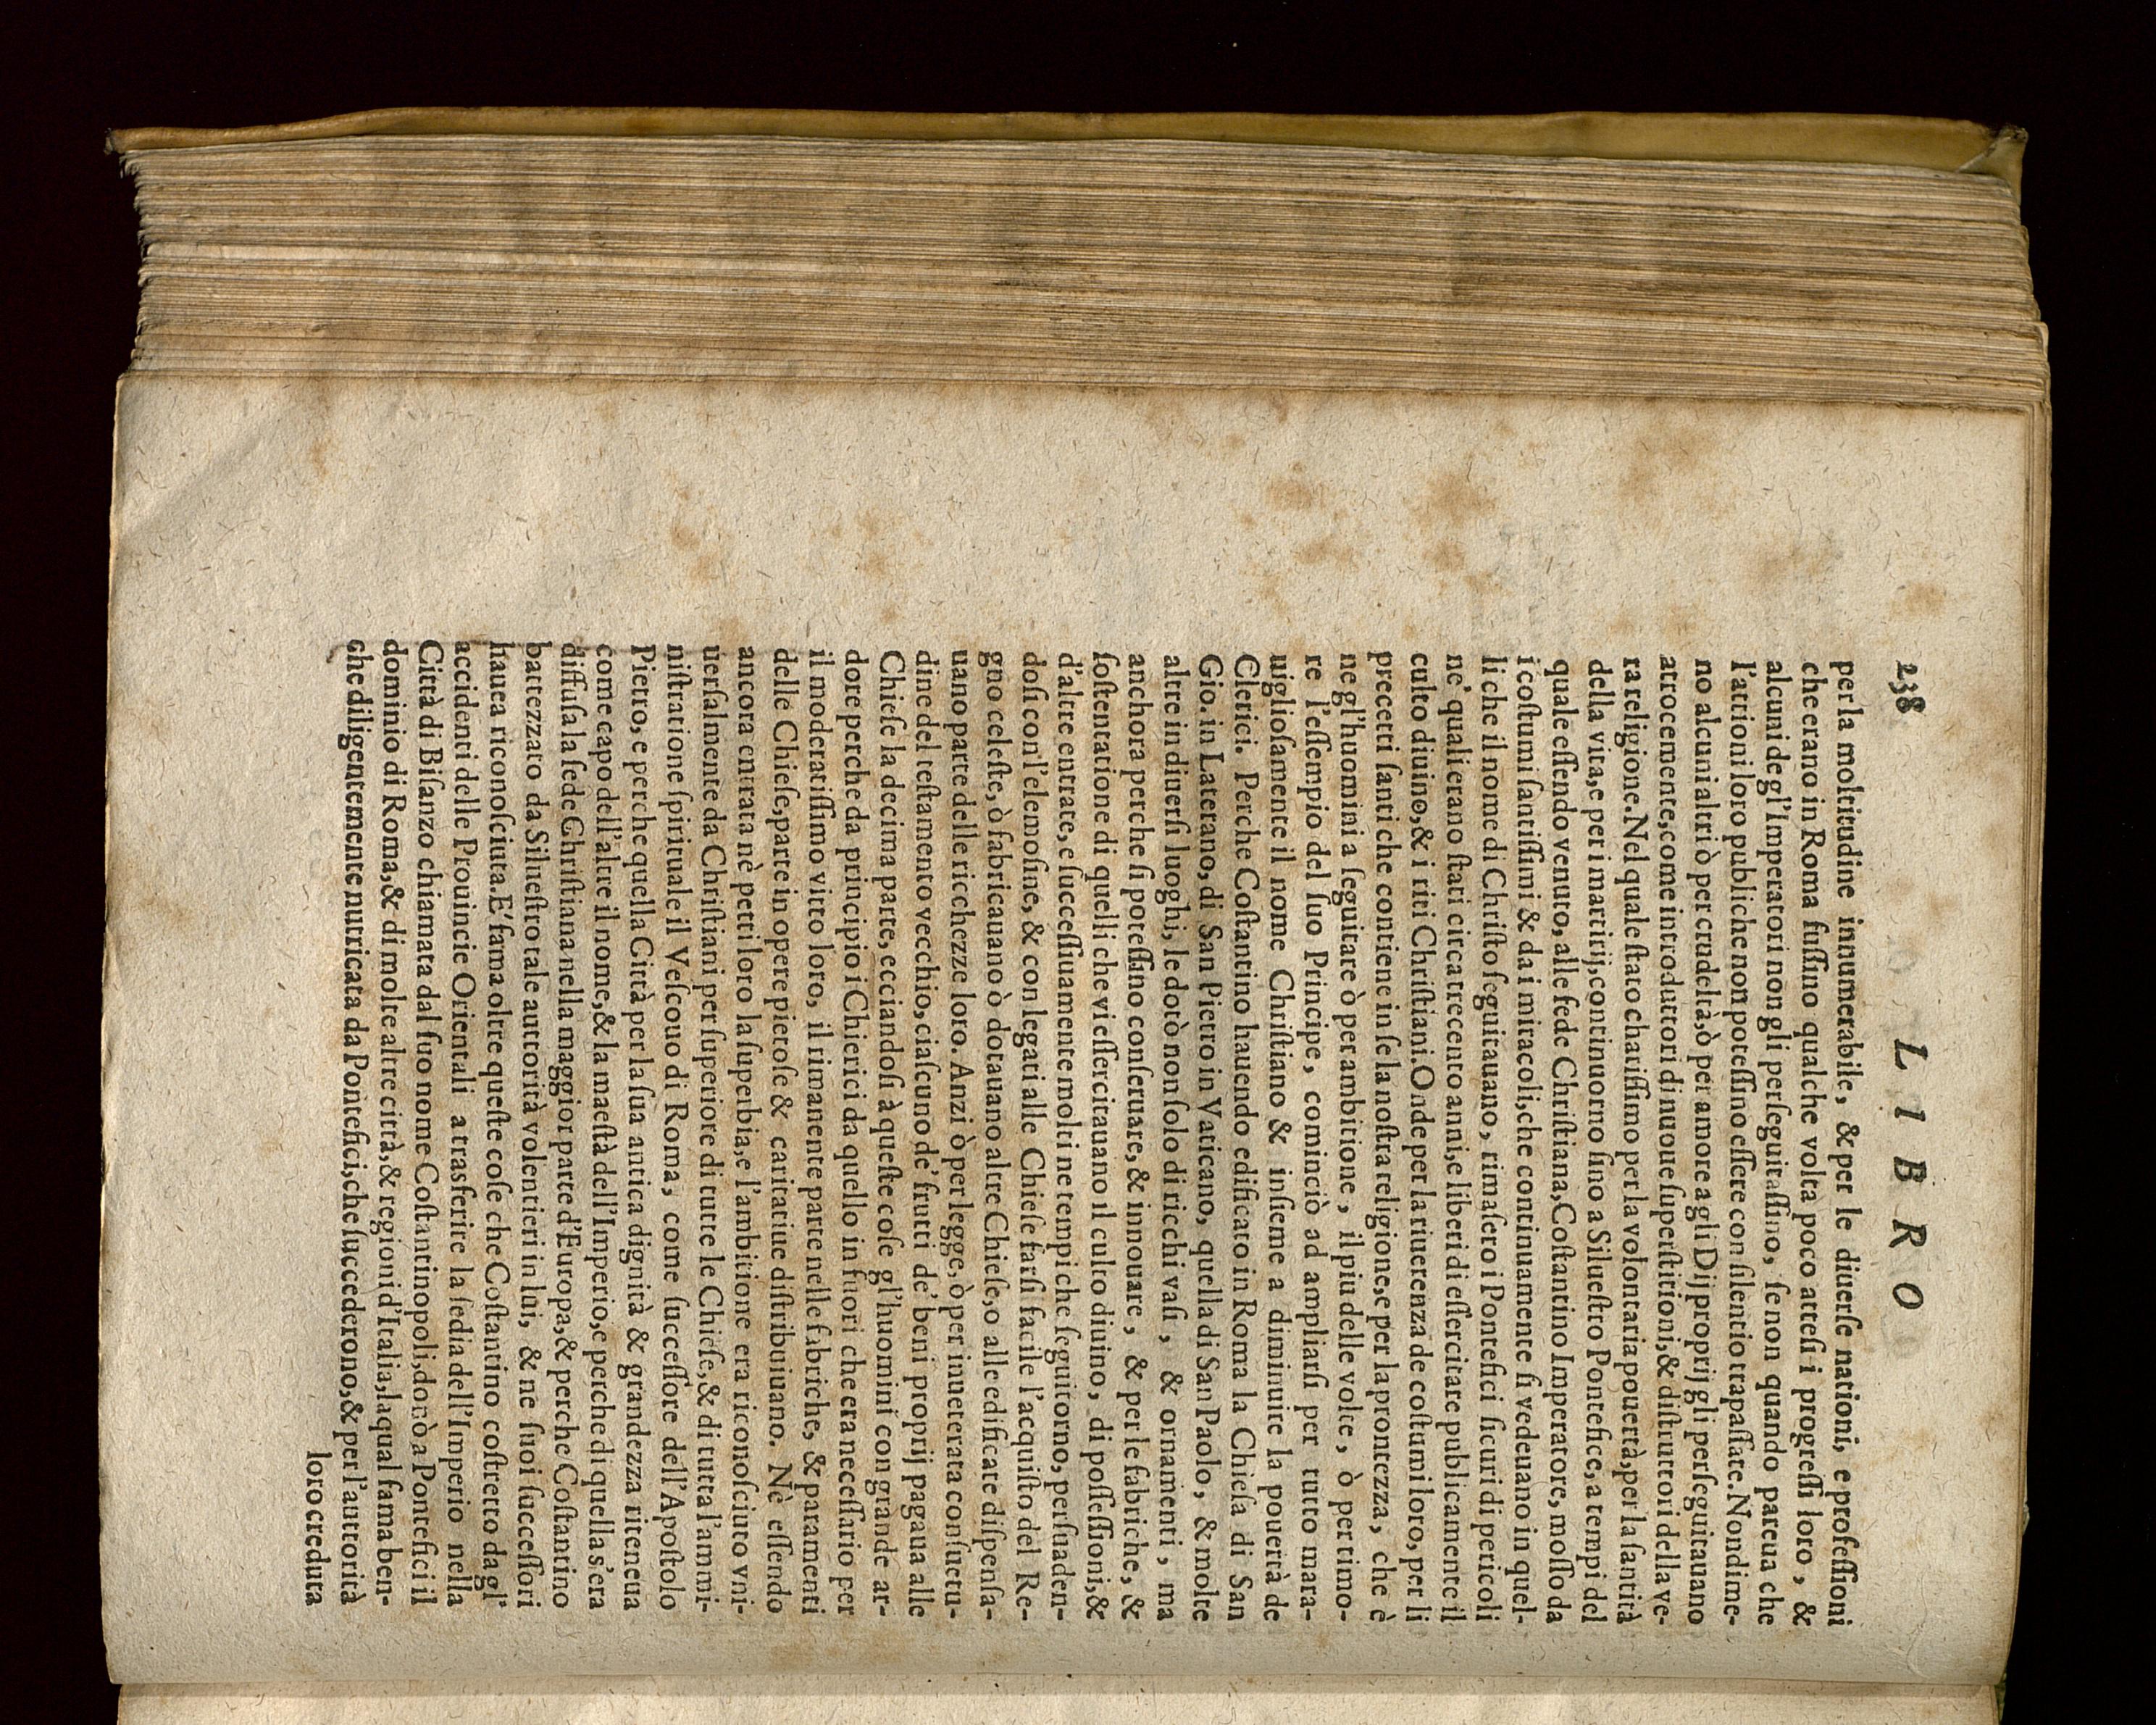 238 LIBRO
per la moltitudine innumerabile, & per le diuerſe nationi, e profeſſioni
che erano in Roma fuſſino qualche volta poco atteſi i progreſſi loro, &
alcuni de gl'Imperatori non gli perſeguitaſſino, ſe non quando pareua che
l'attioni loro publiche non poteſſino eſſere con ſilentio trapaſſate. Nondime-
no alcuni altri ò per crudeltà, ò per amore a gli Dij proprij gli perſeguitauano
atrocemente, come introduttori di nuoue ſuperſtitioni, & diſtruttori della ve-
ra religione. Nel quale ſtato chariſſimo per la volontaria pouertà, per la ſantità
della vita, e per i martirij, continuorno ſino a Silueſtro Pontefice, a tempi del
quale eſſendo venuto, alle fede Chriſtiana, Coſtantino Imperatore, moſſo da
i coſtumi ſantiſſimi & da i miracoli, che continuamente ſi vedeuano in quel-
li che il nome di Chriſto ſeguitauano, rimaſero i Pontefici ſicuri di pericoli
ne' quali erano ſtati circa trecento anni, e liberi di eſſercitare publicamente il
culto diuino, & i riti Chriſtiani. Onde per la riuerenza de coſtumi loro, per li
precetti ſanti che contiene in ſe la noſtra religione, e per la prontezza, che è
ne gl'huomini a ſeguitare ò per ambitione, il piu delle volte, ò per timo-
re l'eſſempio del ſuo Principe, cominciò ad ampliarſi per tutto mara-
uiglioſamente il nome Chriſtiano & inſieme a diminuire la pouertà de
Clerici. Perche Coſtantino hauendo edificato in Roma la Chieſa di San
Gio. in Laterano, di San Pietro in Vaticano, quella di San Paolo, & molte
altre in diuerſi luoghi, le dotò non ſolo di ricchi vaſi, & ornamenti, ma
anchora perche ſi poteſſino conſeruare, & innouare, & per le fabriche, &
ſoſtentatione di quelli che vi eſſercitauano il culto diuino, di poſſeſſioni, &
d'altre entrate, e ſucceſſiuamente molti ne tempi che ſeguitorno, perſuaden-
doſi con l'elemoſine, & con legati alle Chieſe farſi facile l'acquiſto del Re-
gno celeſte, ò fabricauano ò dotauano altre Chieſe, o alle edificate diſpenſa-
uano parte delle ricchezze loro. Anzi ò per legge, ò per inueterata conſuetu-
dine del teſtamento vecchio, ciaſcuno de' frutti de' beni proprij pagaua alle
Chieſe la decima parte, ecciandoſi à queſte coſe gl'huomini con grande ar-
dore perche da principio i Chierici da quello in fuori che era neceſſario per
il moderatiſſimo vitto loro, il rimanente parte nelle fabriche, & paramenti
delle Chieſe, parte in opere pietoſe & caritatiue diſtribuiuano. Nè eſſendo
ancora entrata nè petti loro la ſuperbia, e l'ambitione era riconoſciuto vni-
uerſalmente da Chriſtiani per ſuperiore di tutte le Chieſe, & di tutta l'ammi-
niſtratione ſpirituale il Veſcouo di Roma, come ſucceſſore dell'Apoſtolo
Pietro, e perche quella Città per la ſua antica dignità & grandezza riteneua
come capo dell'altre il nome, & la maeſtà dell'Imperio, e perche di quella s'era
diffuſa la fede Chriſtiana nella maggior parte d'Europa, & perche Coſtantino
battezzato da Silueſtro tale auttorità volentieri in lui, & ne ſuoi ſucceſſori
hauea riconoſciuta. E' fama oltre queſte coſe che Coſtantino coſtretto da gl'
accidenti delle Prouincie Orientali a trasferire la ſedia dell'Imperio nella
Città di Biſanzo chiamata dal ſuo nome Coſtantinopoli, donò a Pontefici il
dominio di Roma, & di molte altre città, & regioni d'Italia, la qual fama ben-
che diligentemente nutricata da Pontefici, che ſuccederono, & per l'auttorità
loro creduta